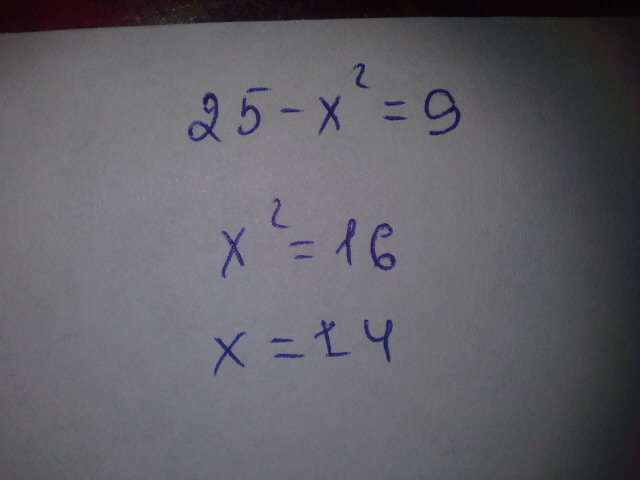 25-x²=9
x²=16
x=±4